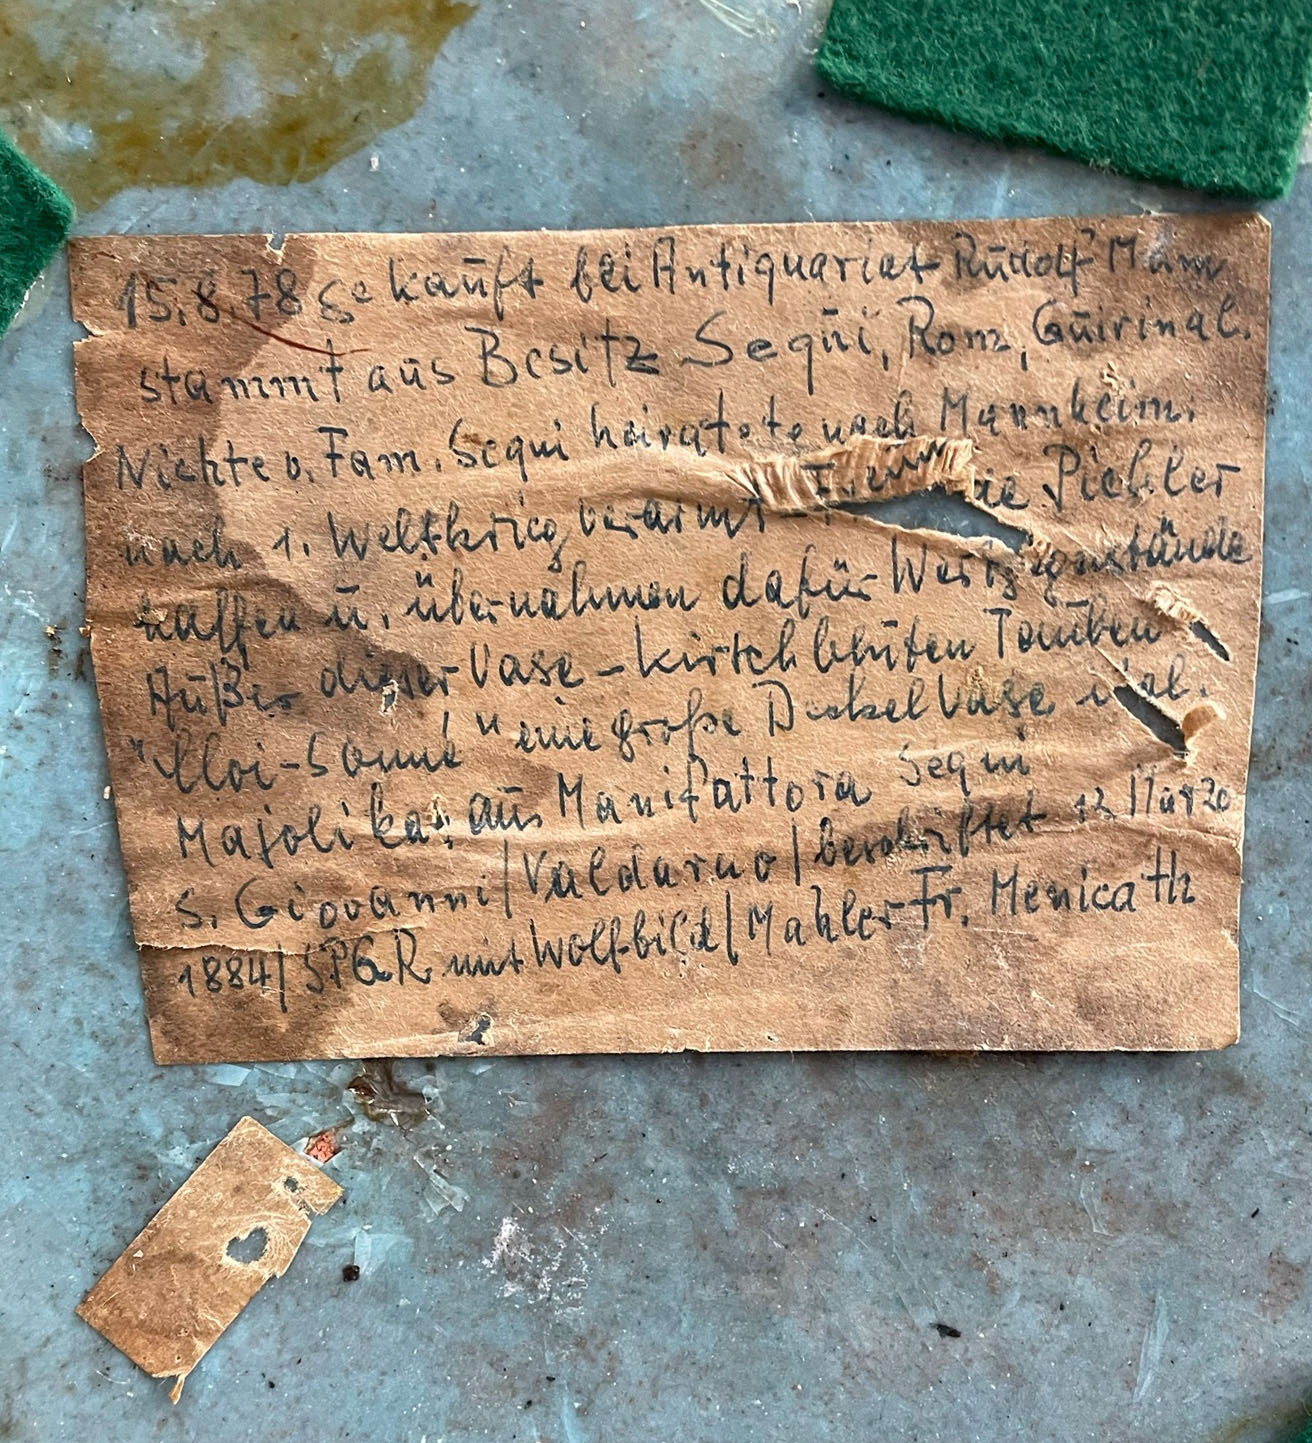 15.8.78 gekauft bei Antiquariat Rudolf Mann
stammt aus Besitz Sequi, Rom, Quirinal.
Nichte v. Fam. Sequi heiratete nach Mannheim.
nach 1. Weltkrieg verarmt - Pichler
halfen u. übernahmen dafür Wertgegenstände
Außer dieser Vase - Kirschblüten Tauben
"Cloi-Sonné" eine große Deckel Vase ital.
Majolika: aus Manifattora Sequi
S. Giovanni/Valdarno/beschriftet 12 Marzo
1884/SPQR mit Wolfbild/Mahler Fr. Menicath